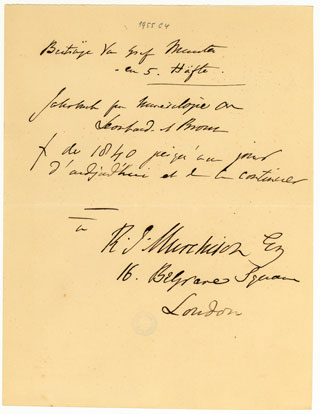 1955 C4
Beiträge von Graf Munster
en 5. Häfte.
Jahrbuch für Mineralogie
Leonhard & Bronn
de 1840 jusqu'au jour
d'aujourd'hui et de la continuer
a
R. I. Murchison Esq
16. Belgrave Square
London